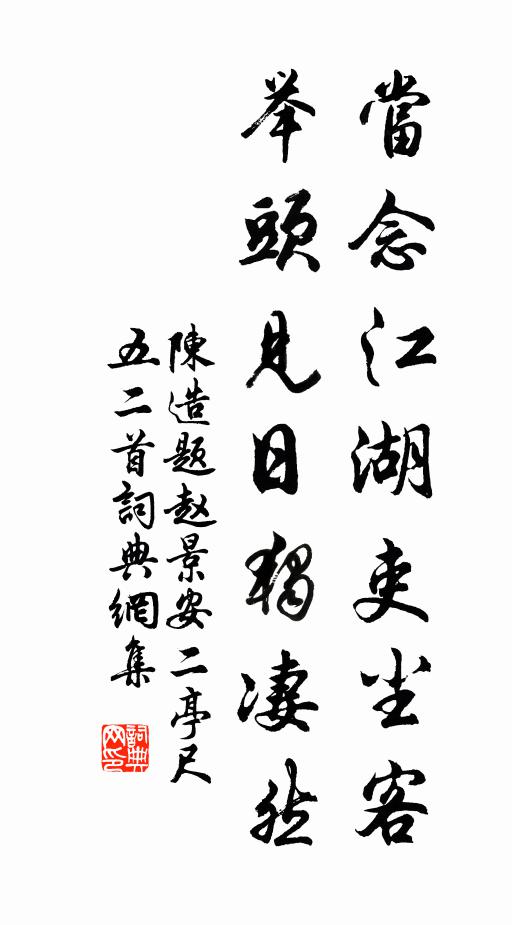 當念江湖吏尘客
举頭見日獨凄然
陳造題赵景安二亭尺
五二首詞典網集
詞典网印